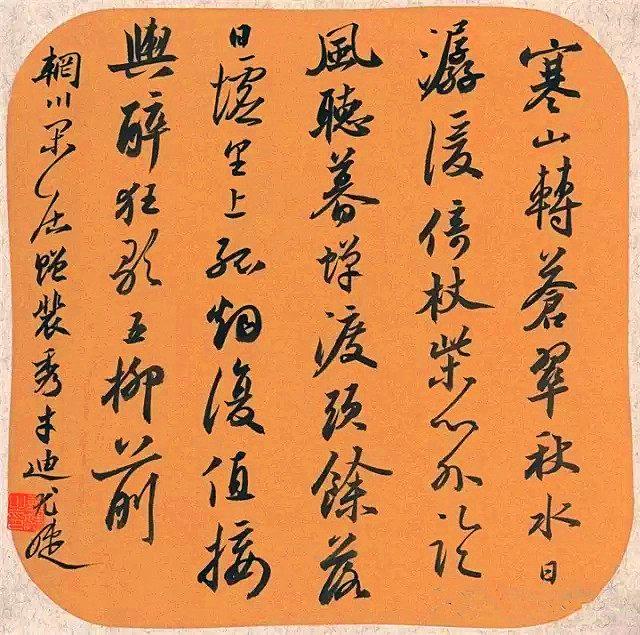 寒山轉蒼翠秋水日
潺湲倚杖柴門外臨
風聽暮蟬渡頭餘落
日墟里上孤烟復值接
輿醉狂歌五柳前
輞川閑居贈裴秀才迪